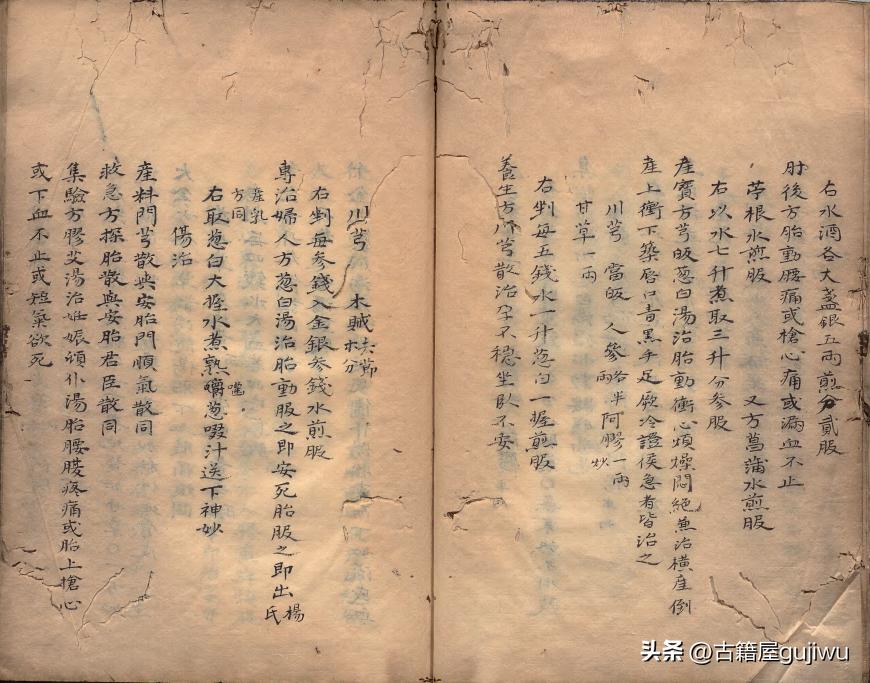 右水酒各大盞銀五兩煎分貳服
肘後方胎動腰痛或槍心痛或漏血不止
苧根水煎服 又方菖蒲水煎服
右以水七升煮取三升分參服
產寶方芎皈葱白湯治胎動衝心煩燥悶絕兼治橫產倒
產上衝下築唇口青黑手足厥冷證侯急者皆治之
川芎 當皈 人參各半兩 阿膠一兩炒
甘草一兩
右剉每五錢水一升葱白一握煎服
養生方川芎散治孕不穩坐臥不安
川芎 木賊
右剉每參錢入金銀參錢水煎服
專治婦人方葱白湯治胎動服之即安死胎服之即出楊氏
產乳方同
右取葱白大握水煮熟嚼葱啜汁送下神妙
傷治
產料門芎散與安胎門順氣散同
救急方探胎散與安胎君臣散同
集驗方膠艾湯治妊娠頓仆湯胎腰腹疼痛或胎上槍心
或下血不止或短氣欲死
头条 @古籍屋gujiwu